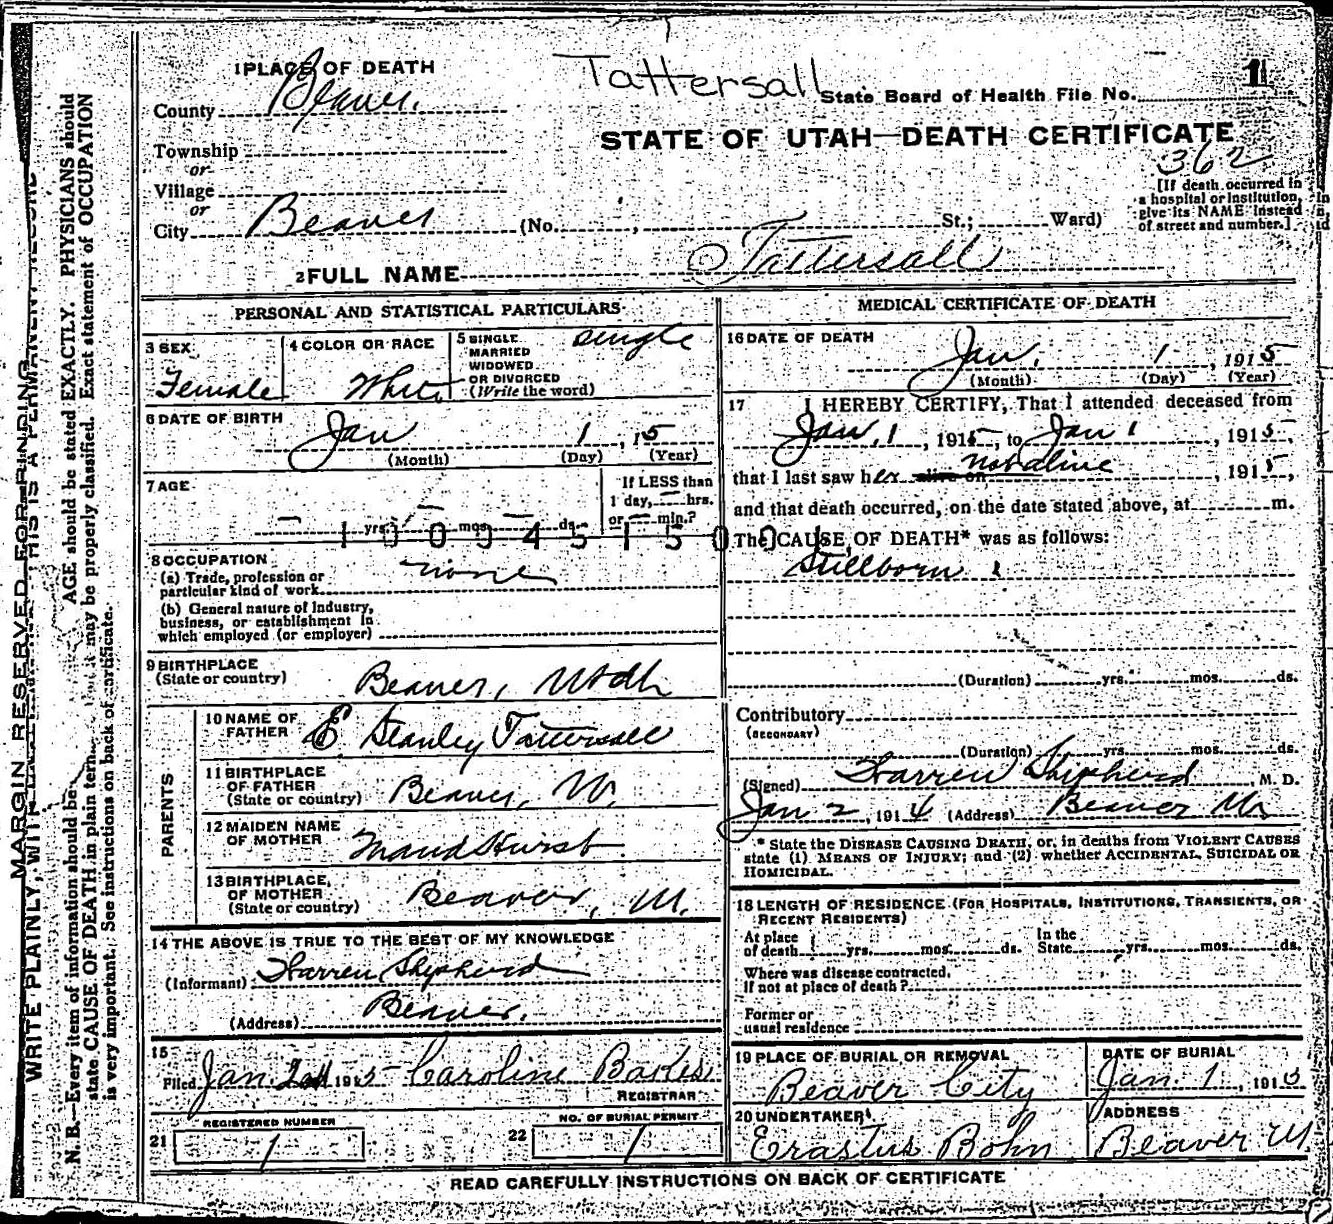 Tattersall
1 PLACE OF DEATH
County Beaver.
State Board of Health File No. 1
STATE OF UTAH—DEATH CERTIFICATE
362
Township
or
Village
or
City Beaver (No. , St.; Ward)
[If death occurred in
a hospital or institution,
give its NAME instead
of street and number.]
2 FULL NAME Tattersall
PERSONAL AND STATISTICAL PARTICULARS
3 SEX
Female
4 COLOR OR RACE
White
5 SINGLE
MARRIED
WIDOWED
OR DIVORCED
(Write the word)
single
6 DATE OF BIRTH
Jan 1 , 15
(Month) (Day) (Year)
7 AGE
If LESS than
1 day, — hrs.
or — min.?
— yrs. — mos. — ds.
8 OCCUPATION
(a) Trade, profession or
particular kind of work none
(b) General nature of industry,
business, or establishment in
which employed (or employer)
9 BIRTHPLACE
(State or country) Beaver, Utah
PARENTS
10 NAME OF
FATHER E Stanley Tattersall
11 BIRTHPLACE
OF FATHER
(State or country) Beaver, U.
12 MAIDEN NAME
OF MOTHER Maud Hurst
13 BIRTHPLACE,
OF MOTHER
(State or country) Beaver, U.
14 THE ABOVE IS TRUE TO THE BEST OF MY KNOWLEDGE
(Informant) Warren Shepherd
(Address) Beaver.
15
Filed Jan 2nd 1915 Caroline
REGISTRAR
21 REGISTERED NUMBER
1
22 NO. OF BURIAL PERMIT
1
MEDICAL CERTIFICATE OF DEATH
16 DATE OF DEATH
Jan. 1 , 1915
(Month) (Day) (Year)
17 I HEREBY CERTIFY, That I attended deceased from
Jan. 1 , 1915, to Jan 1 , 1915,
that I last saw her alive on not alive , 1915,
and that death occurred, on the date stated above, at m.
The CAUSE OF DEATH* was as follows:
Stillborn
(Duration) yrs. mos. ds.
Contributory
(SECONDARY)
(Duration) yrs. mos. ds.
(Signed) Warren Shepherd , M. D.
Jan 2 , 1914 (Address) Beaver U
* State the DISEASE CAUSING DEATH, or, in deaths from VIOLENT CAUSES
state (1) MEANS OF INJURY; and (2) whether ACCIDENTAL, SUICIDAL OR
HOMICIDAL.
18 LENGTH OF RESIDENCE (FOR HOSPITALS, INSTITUTIONS, TRANSIENTS, OR
RECENT RESIDENTS)
At place
of death yrs. mos. ds.
In the
State yrs. mos. ds.
Where was disease contracted,
If not at place of death?
Former or
usual residence
19 PLACE OF BURIAL OR REMOVAL
Beaver City
DATE OF BURIAL
Jan. 1 , 1915
20 UNDERTAKER
Erastus Bohn
ADDRESS
Beaver U
READ CAREFULLY INSTRUCTIONS ON BACK OF CERTIFICATE
MARGIN RESERVED FOR BINDING
WRITE PLAINLY, WITH THIS IS A PERMANENT RECORD
N. B.—Every item of information should be AGE should be stated EXACTLY. PHYSICIANS should
state CAUSE OF DEATH in plain terms it may be properly classified. Exact statement of OCCUPATION
is very important. See instructions on back of certificate.